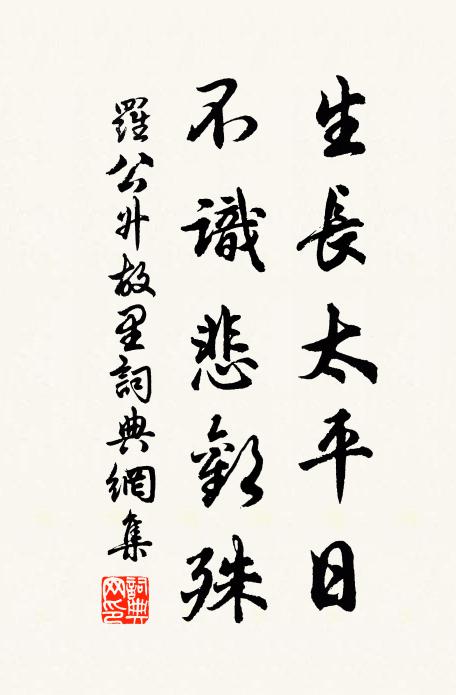 生長太平日
不識悲歡殊
羅公升故里詞典網集
詞典
网印